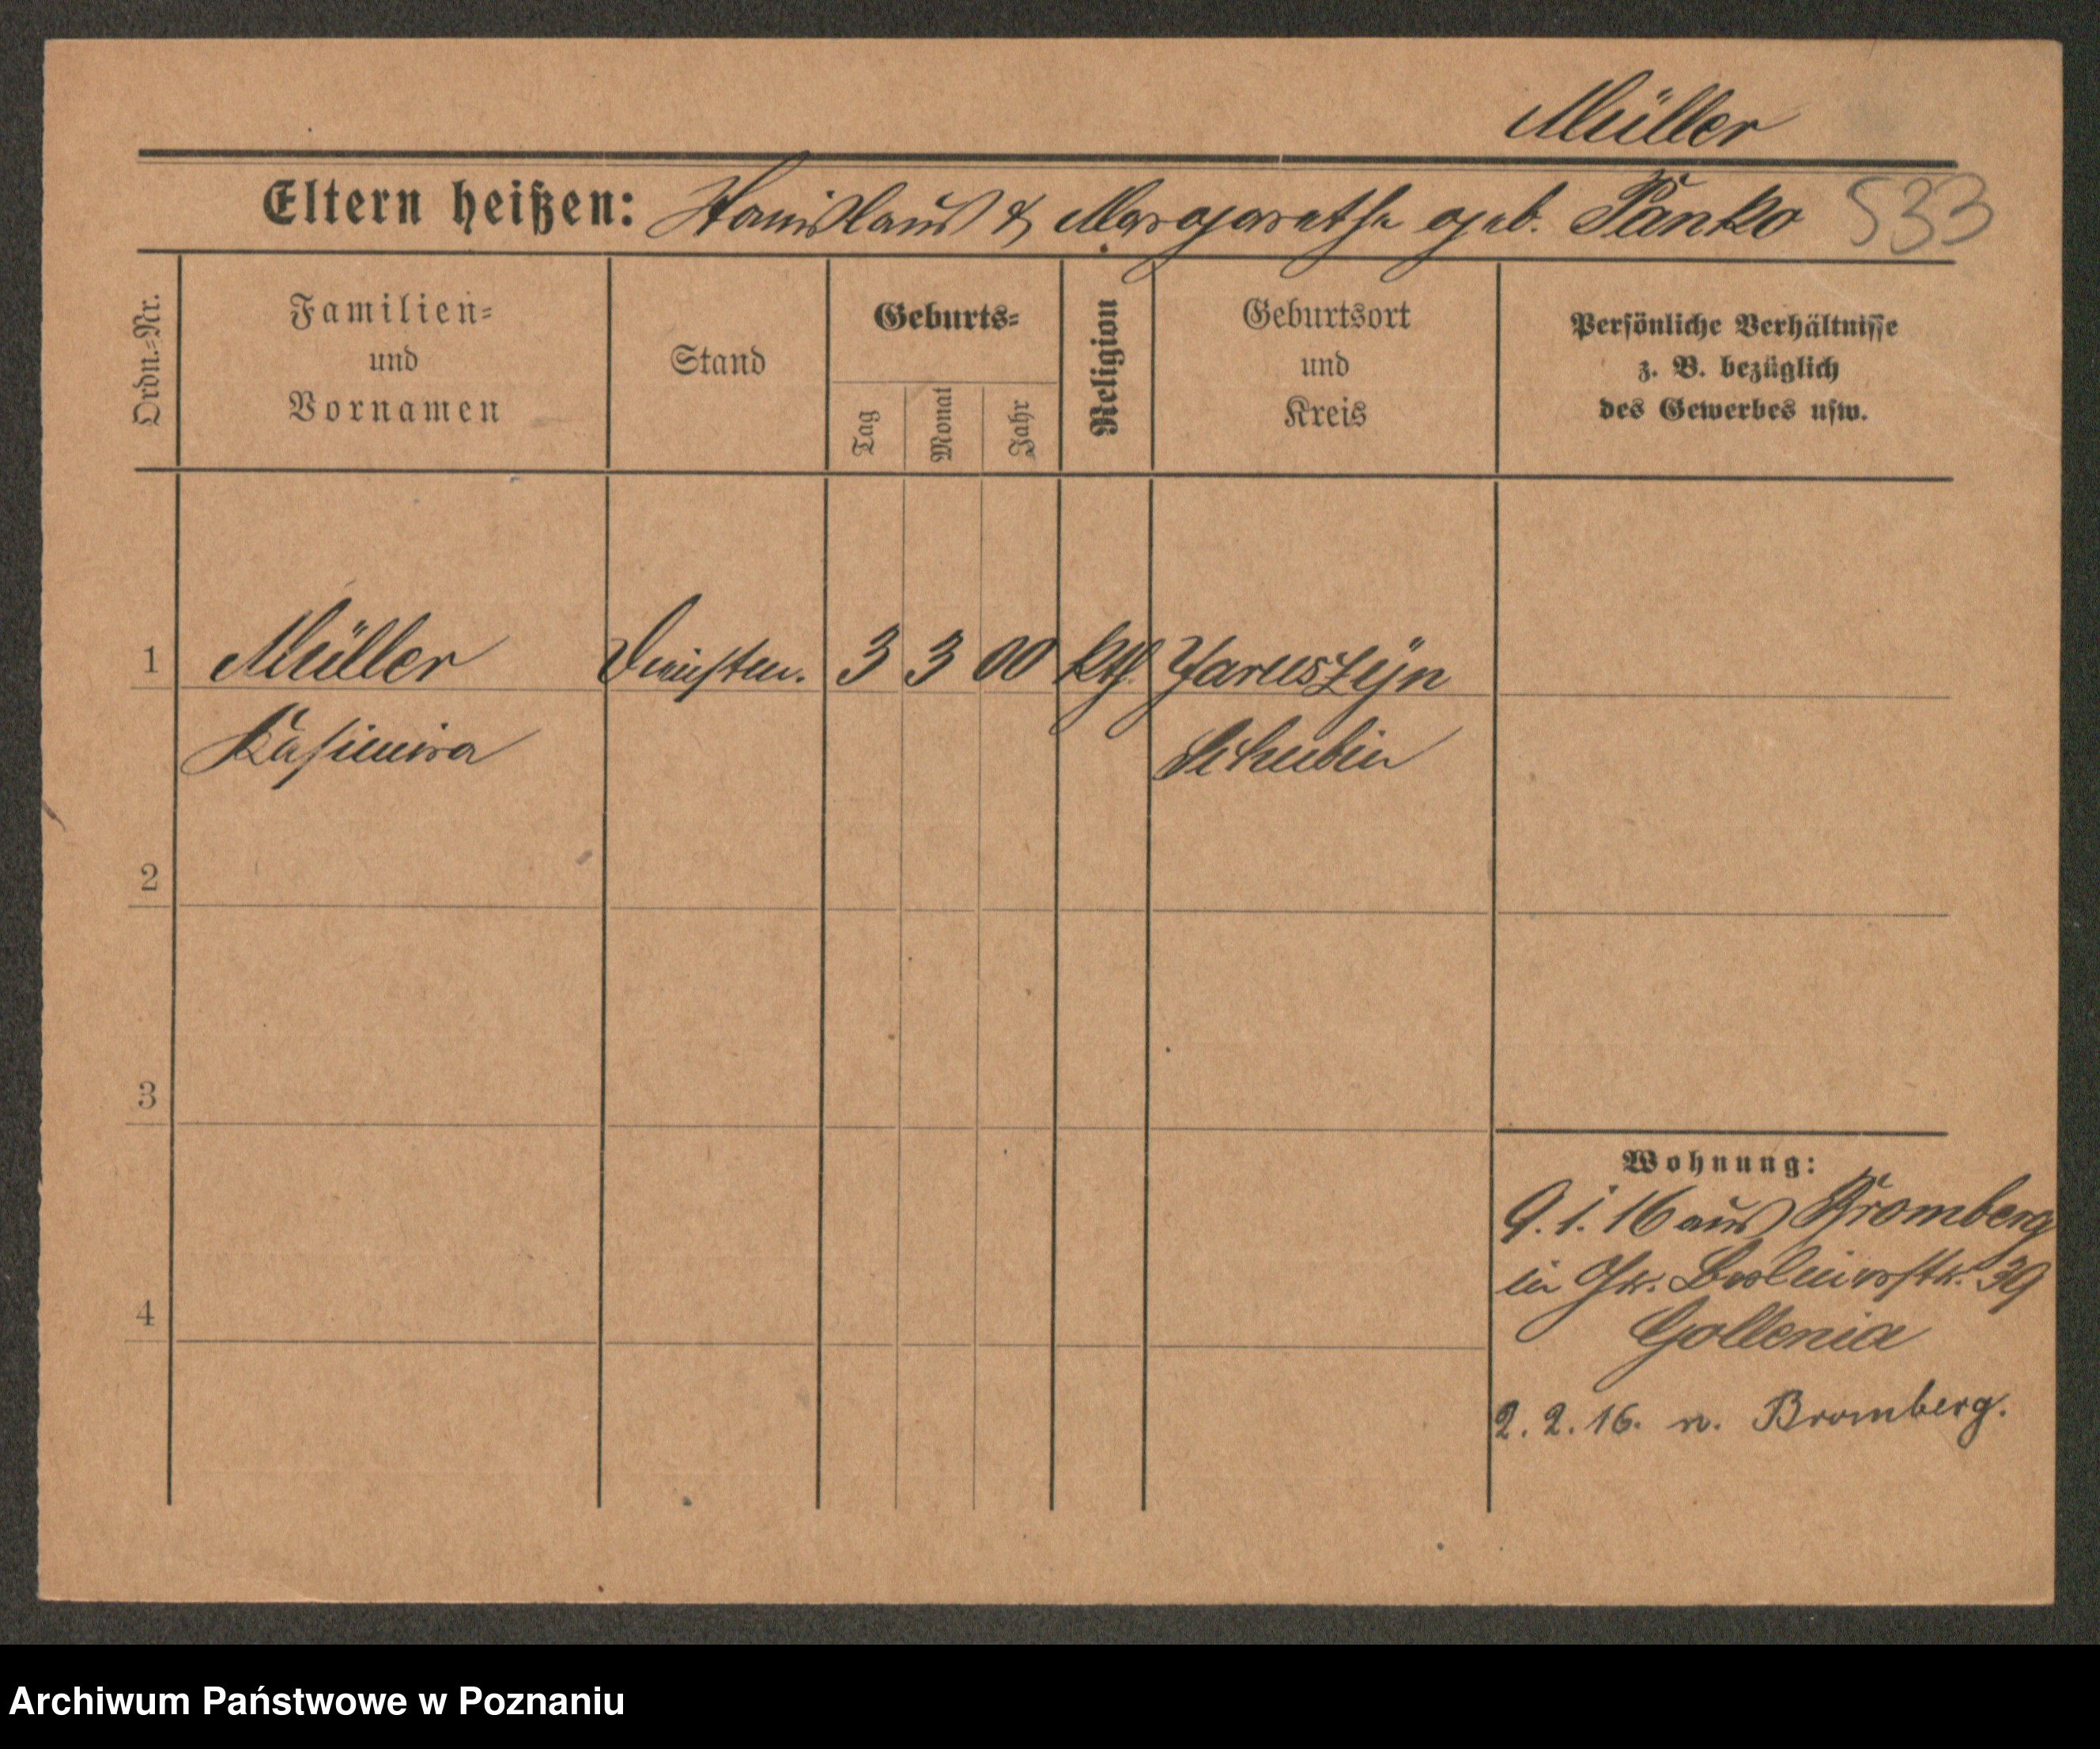 Müller
Eltern heißen: Stanislaus & Margarethe geb. Panko 533
Ordn.=Nr.
Familien=
und
Vornamen
Stand
Geburts=
Tag
Monat
Jahr
Religion
Geburtsort
und
Kreis
Persönliche Verhältnisse
z. B. bezüglich
des Gewerbes usw.
1 Müller 3 3 00 kth. Jaruszyn
Kasimira Schubin
2
3
4
Wohnung:
9. 1. 16 aus Bromberg
in Gr. Berlinerstr. 39
Gollenia
2. 2. 16. n. Bromberg.
Archiwum Państwowe w Poznaniu